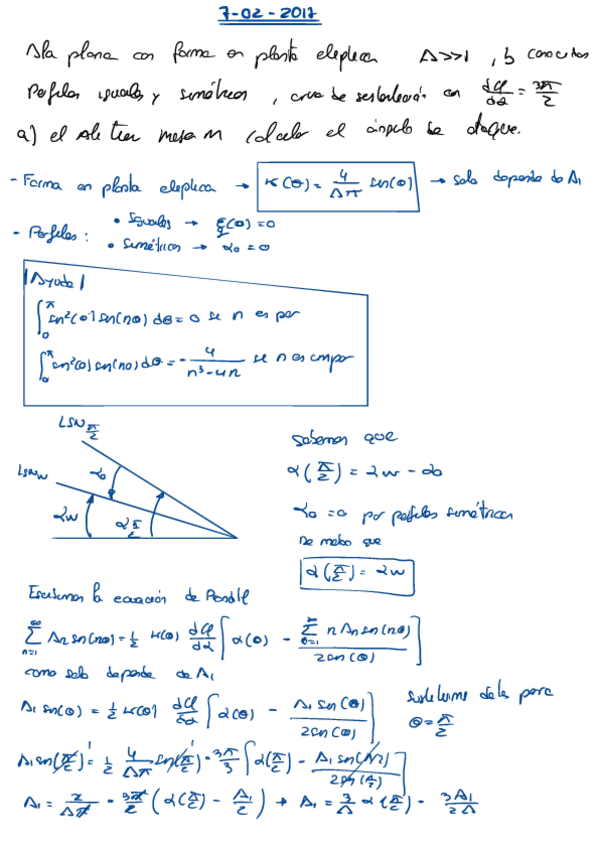 7-02-2017
Ala plana con forma en planta eliptica Λ>>1, b conocidos
Perfiles iguales y simétricos, curva de sustentación con dCl/dα = 3π/2
a) el ala tiene masa m calcular el ángulo de ataque.
- Forma en planta eliptica → K(θ) = 4/Λπ sen(θ) → solo depende de A1
- Perfiles: • Iguales → ε(θ)=0
• Simétricos → α0 = 0
|Ayuda|
∫0^π sen²(θ) sen(nθ) dθ = 0 se n es par
∫0^π sen²(θ) sen(nθ) dθ = - 4/(n³-4n) se n es impar
LSN π/2
LSNw
α0
αw
α π/2
sabemos que
α(π/2) = αw - α0
α0 = 0 por perfiles simétricos
De modo que
α(π/2) = αw
Escribimos la ecuación de Prandtl
∑n=1^∞ An sen(nθ) = 1/2 K(θ) dCl/dα [α(θ) - ∑n=1^∞ n An sen(nθ) / 2sen(θ)]
como solo depende de A1
A1 sen(θ) = 1/2 K(θ) dCl/dα [α(θ) - A1 sen(θ) / 2sen(θ)]
para
θ = π/2
A1 sen(π/2) = 1/2 4/Λπ sen(π/2) · 3π/3 [α(π/2) - A1 sen(π/2) / 2sen(π/2)]
A1 = 2/Λπ · 3π/2 (α(π/2) - A1/2) → A1 = 3/Λ α(π/2) - 3A1/2Λ